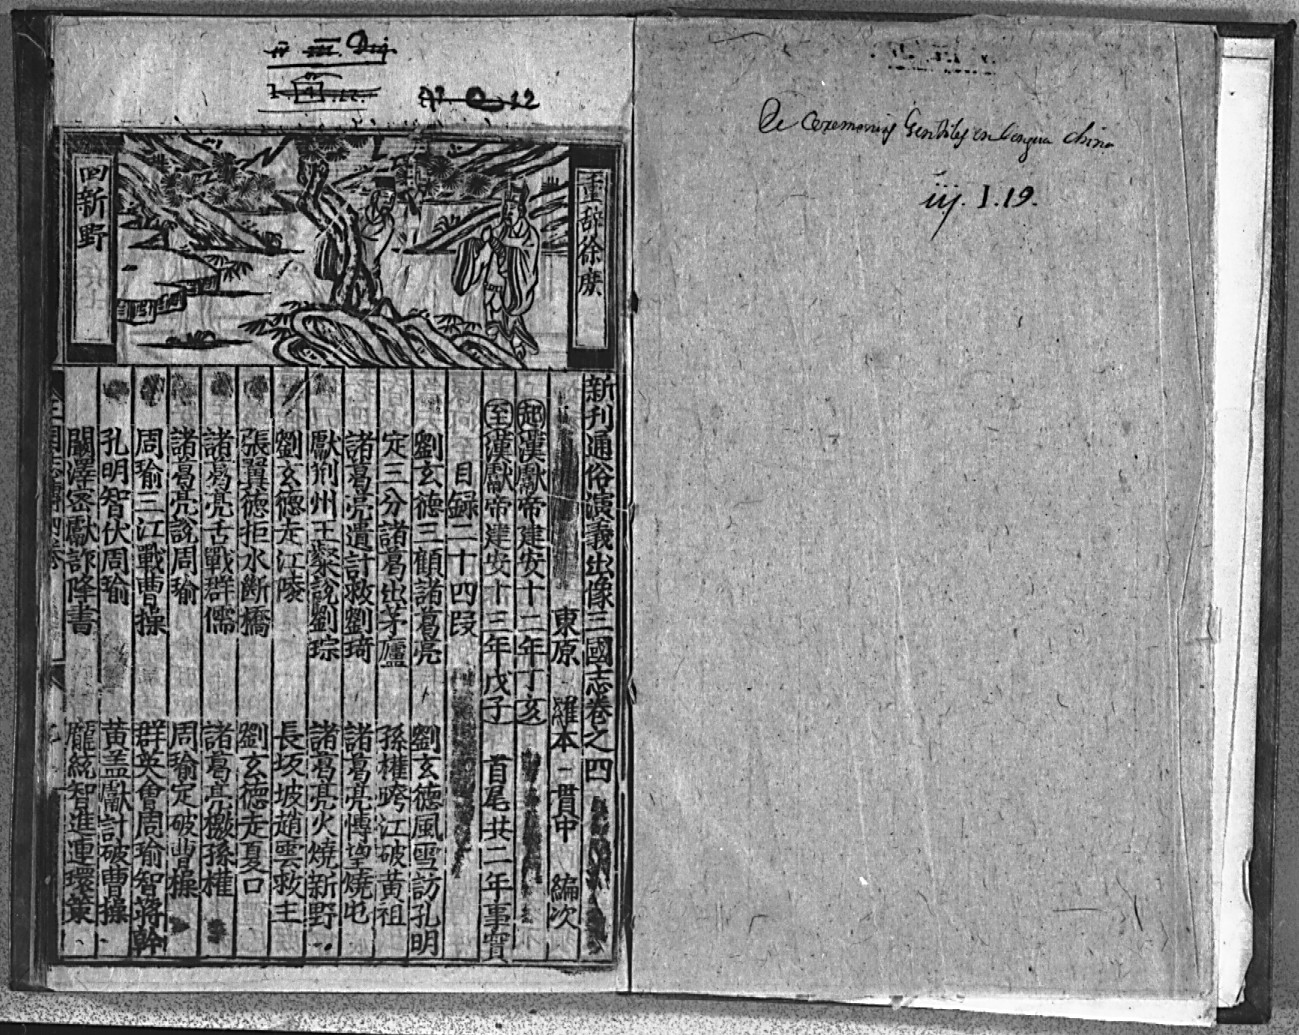 De Ceremonias Gentiles en lengua China
iij. I. 19.
12
重辞徐庶
回新野
新刊通俗演義出像三國志卷之四
東原 羅本 貫中 編次
起漢獻帝建安十二年丁亥
至漢獻帝建安十三年戊子 首尾共二年事實
目録二十四段
劉玄德三顧諸葛亮 劉玄德風雪訪孔明
定三分諸葛出茅廬 孫權跨江破黃祖
諸葛亮遺計救劉琦 諸葛亮博望燒屯
獻荊州王粲說劉琮 諸葛亮火燒新野
劉玄德走江陵 長坂坡趙雲救主
張翼德拒水斷橋 劉玄德走夏口
諸葛亮舌戰群儒 諸葛亮激孫權
諸葛亮說周瑜 周瑜定破曹操
周瑜三江戰曹操 群英會周瑜智蔣幹
孔明智伏周瑜 黃盖獻計破曹操
闞澤密獻詐降書 龐統智進連環策